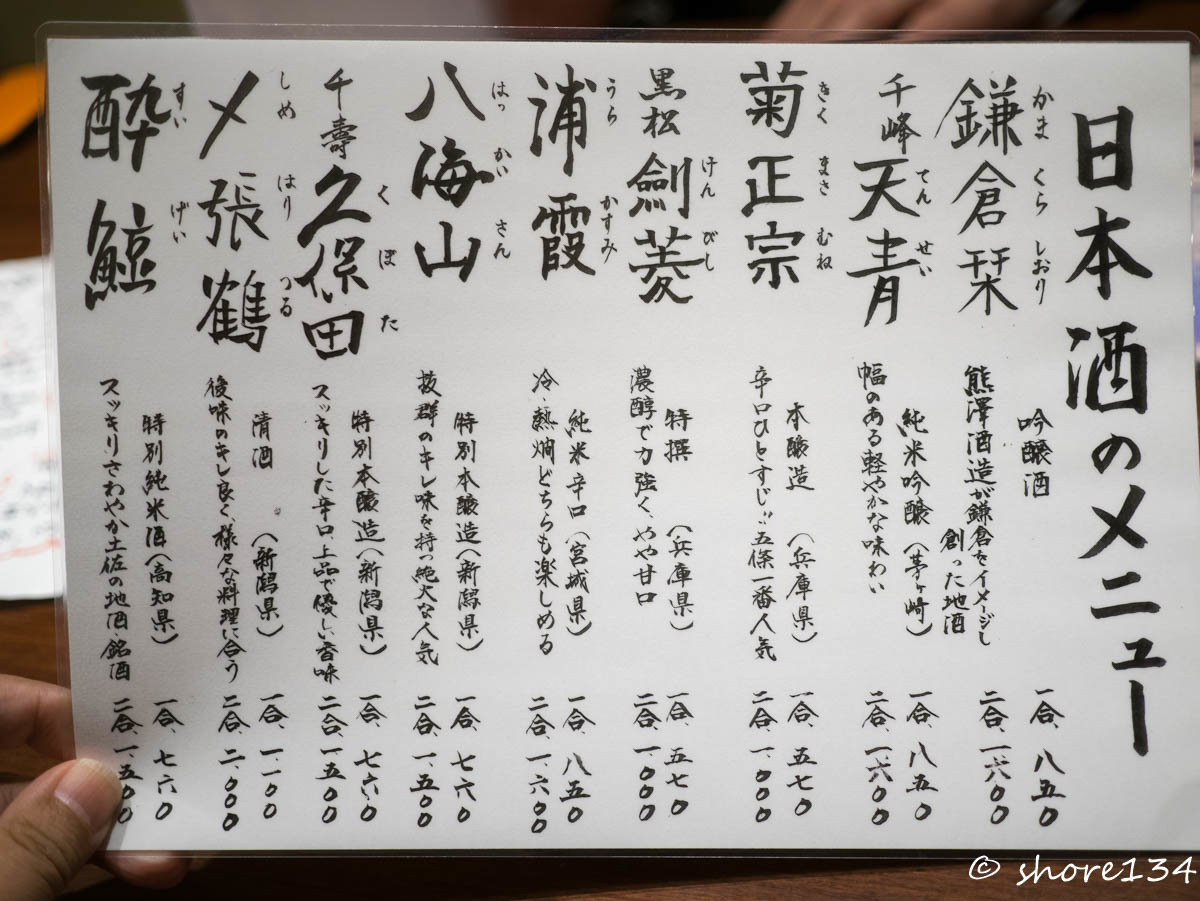 日本酒のメニュー
鎌倉栞
かまくらしおり
吟醸酒
熊澤酒造が鎌倉をイメージし
創った地酒
一合、八五〇
二合、一六〇〇
千峰天青
てんせい
純米吟醸(茅ヶ崎)
幅のある軽やかな味わい
一合、八五〇
二合、一六〇〇
菊正宗
きくまさむね
本醸造(兵庫県)
辛口ひとすじ!!五條一番人気
一合、五七〇
二合、一、〇〇〇
黒松剣菱
けんびし
特撰(兵庫県)
濃醇で力強く、やや甘口
一合、五七〇
二合、一、〇〇〇
浦霞
うらかすみ
純米辛口(宮城県)
冷・熱燗どちらも楽しめる
一合、八五〇
二合、一、六〇〇
八海山
はっかいさん
特別本醸造(新潟県)
抜群のキレ味を持つ絶大な人気
一合、七六〇
二合、一、五〇〇
千壽久保田
くぼた
特別本醸造(新潟県)
スッキリした辛口、上品で優しい香味
一合、七六〇
二合、一、五〇〇
〆張鶴
しめはりつる
清酒(新潟県)
後味のキレ良く、様々な料理に合う
一合、一、一〇〇
二合、二、〇〇〇
酔鯨
すいげい
特別純米酒(高知県)
スッキリさわやか土佐の地酒銘酒
一合、七六〇
一、五〇〇
© shore134